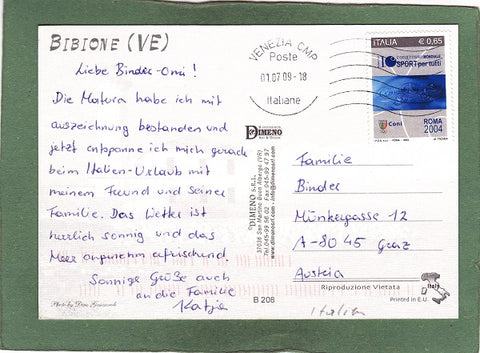 BIBIONE (VE)
Liebe Binder-Omi!
Die Matura habe ich mit
auszeichnung bestanden und
jetzt entspanne ich mich gerade
beim Italien-Urlaub mit
meinem Freund und seiner
Familie. Das Wetter ist
herrlich sonnig und das
Meer angenehm erfrischend.
Sonnige Grüße auch
an die Familie
Katja
VENEZIA CMP
Poste
01.07.09-18
Italiane
ITALIA € 0,65
SPORT per tutti
Coni
ROMA
2004
DIMENO
DIMENO S.R.L.
www.dimenosrl.com
Familie
Binder
Münzergasse 12
A-8045 Graz
Austria
Riproduzione Vietata
Italy
Printed in E.U.
B 208
Photo by Dino
Italien